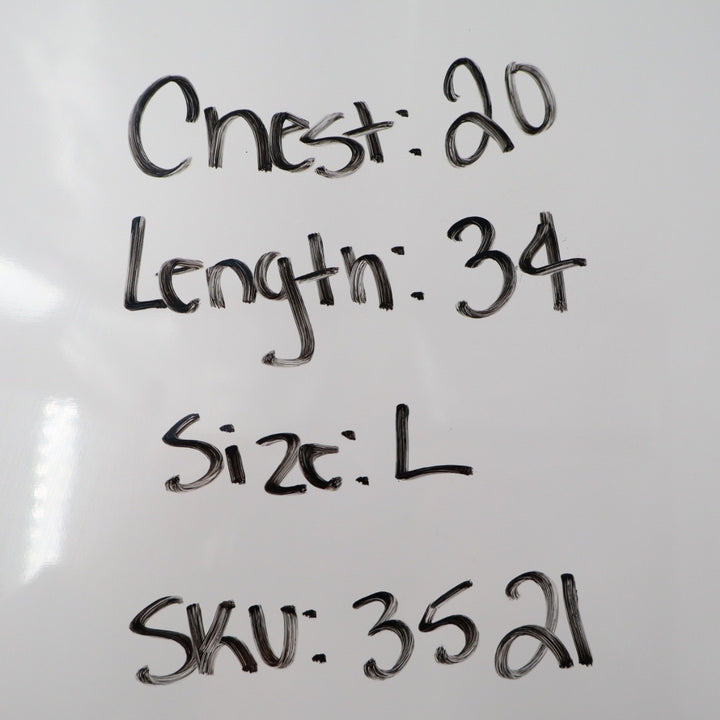 Chest: 20
Length: 34
Size: L
SKU: 3521